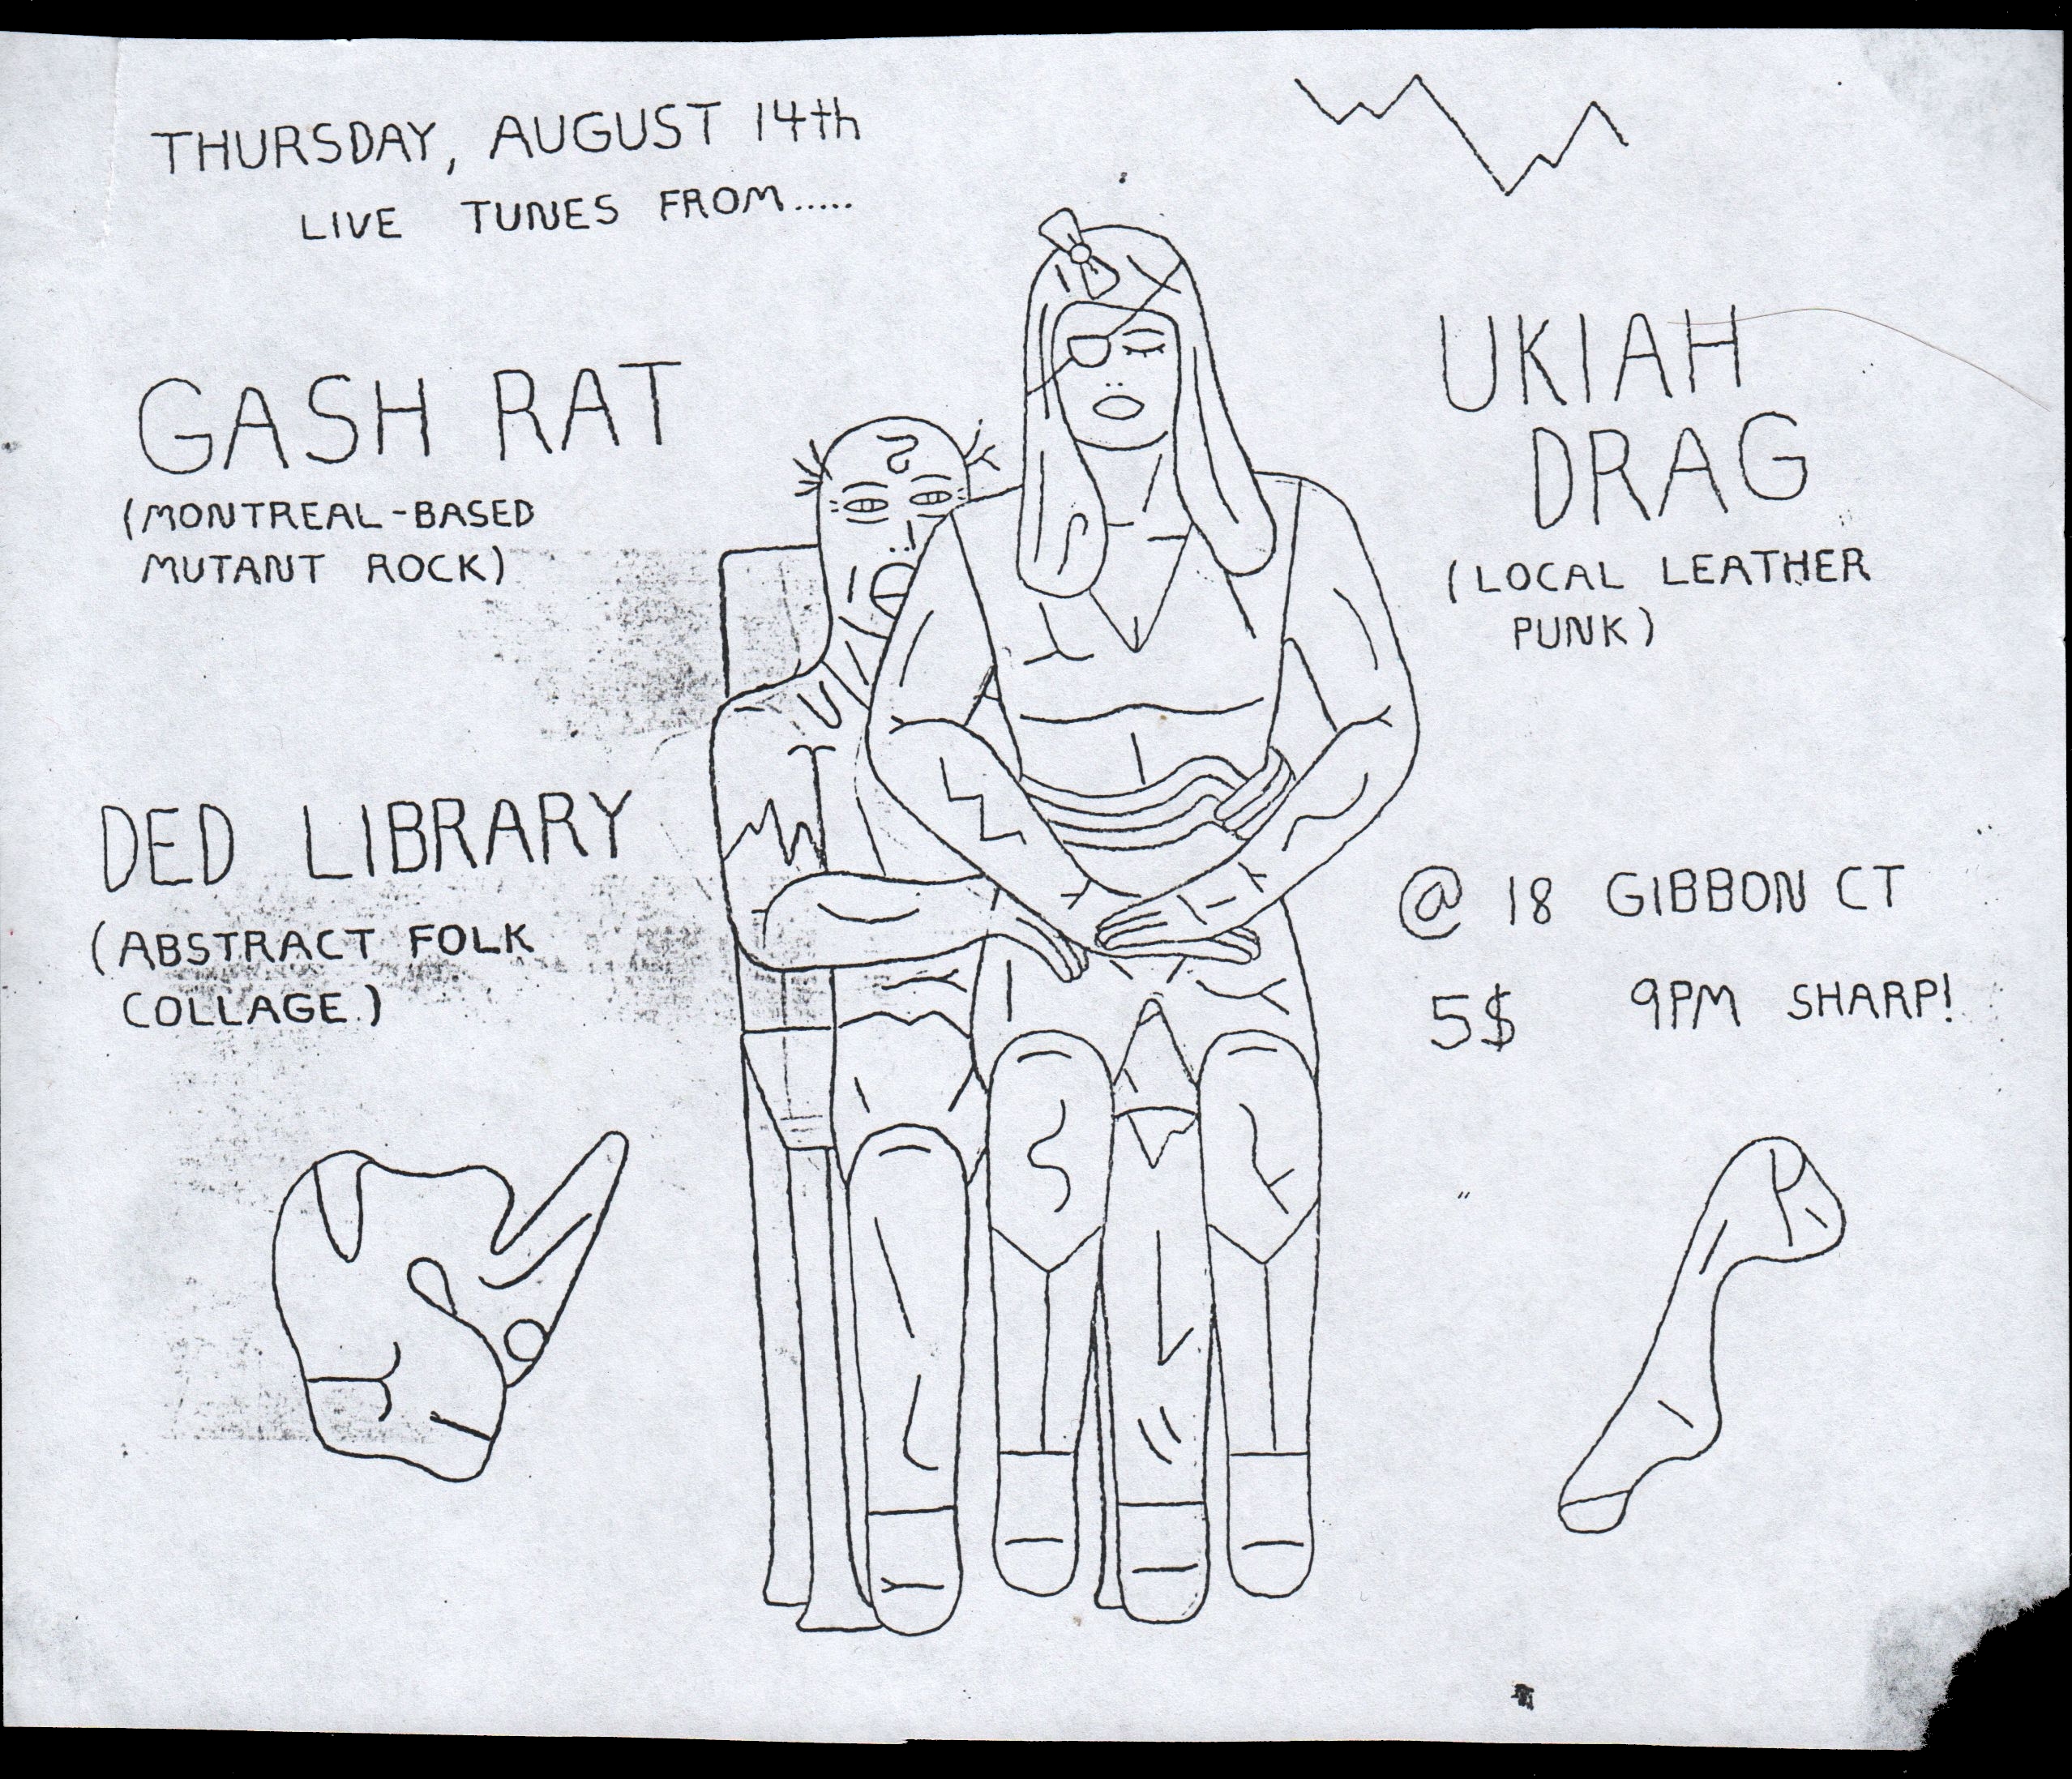 THURSDAY, AUGUST 14th
LIVE TUNES FROM.....
GASH RAT
(MONTREAL-BASED
MUTANT ROCK)
UKIAH
DRAG
(LOCAL LEATHER
PUNK)
DED LIBRARY
(ABSTRACT FOLK
COLLAGE.)
@ 18 GIBBON CT
5$ 9PM SHARP!